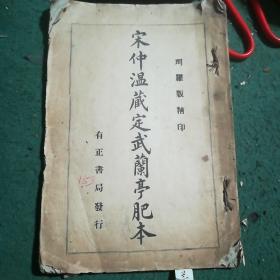 珂羅版精印
宋仲温藏定武蘭亭肥本
有正書局發行